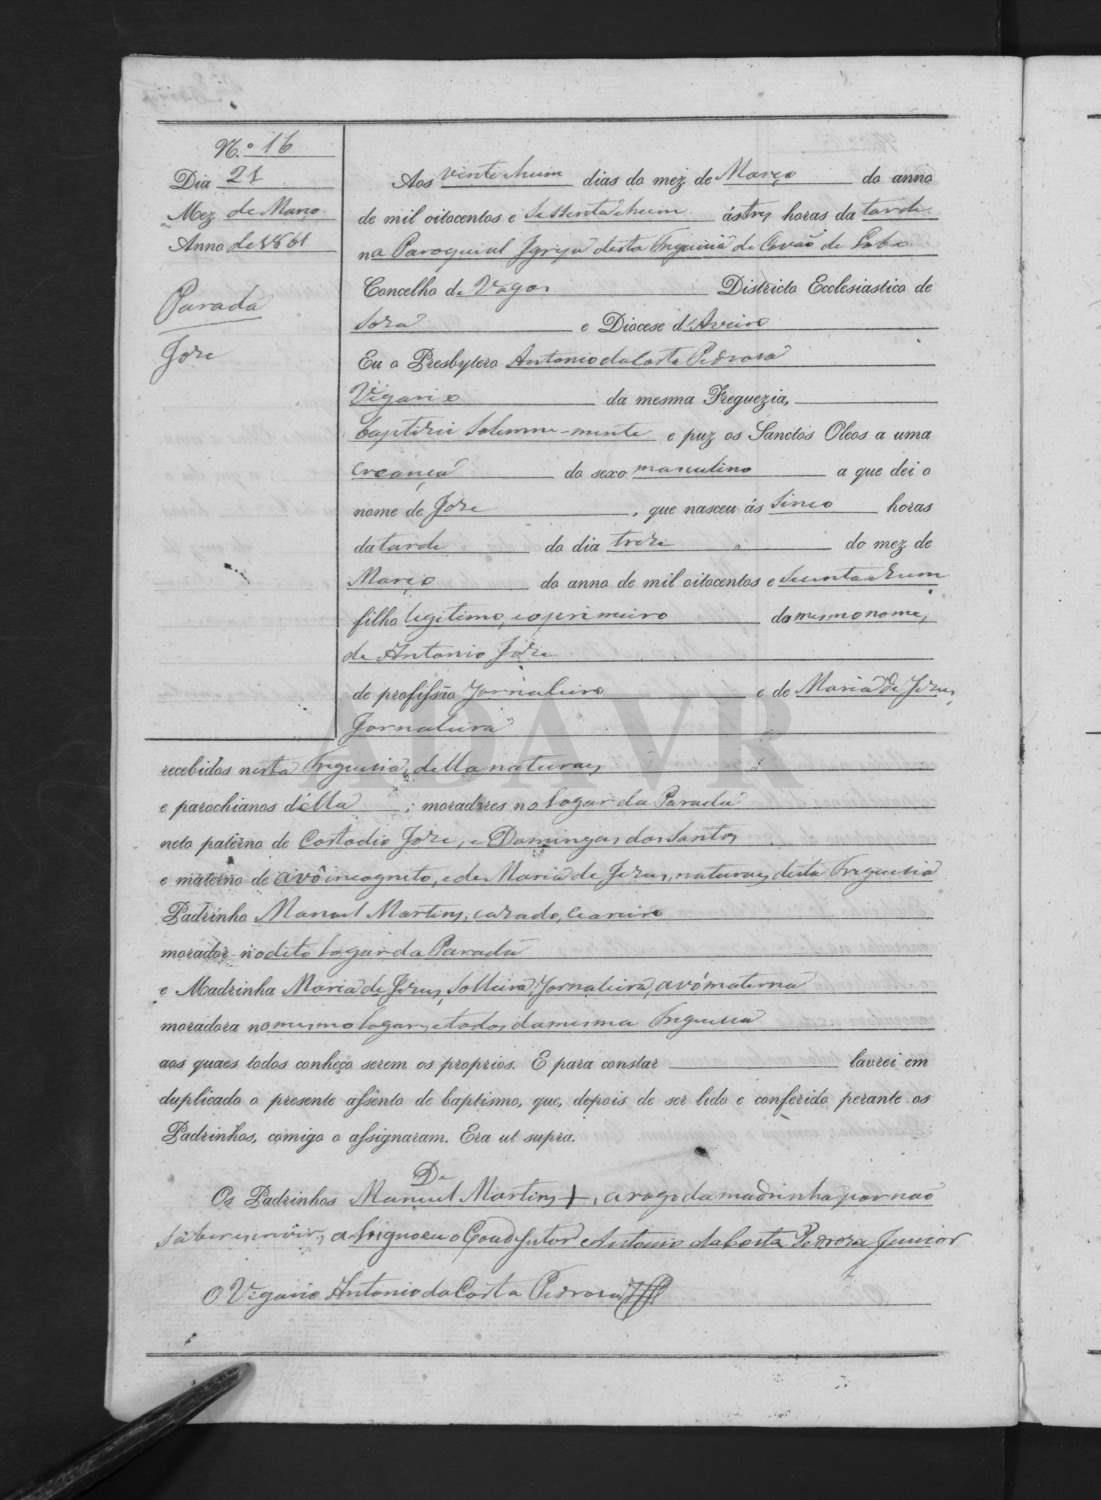 N.º 16
Dia 21
Mez de Março
Anno de 1861
Parada
Joze
Aos vinte hum dias do mez de Março do anno
de mil oitocentos e sessenta e hum ás tres horas da tarde
na Paroquial Igreja desta Freguezia de Covaõ do Lobo
Concelho de Vagos Districto Ecclesiastico de
Soza e Diocese d'Aveiro
Eu o Presbytero Antonio da Costa Pedroza
Vigario da mesma Freguezia,
baptizei Solemne-mente e puz os Sanctos Oleos a uma
creança do sexo masculino a que dei o
nome de Joze, que nasceu ás sinco horas
da tarde do dia treze do mez de
Março do anno de mil oitocentos e sessenta e hum
filho legitimo, e o primeiro do mesmo nome,
de Antonio Joze
de profissão Jornaleiro e de Maria de Jezus,
Jornaleira
recebidos nesta Freguesia, della naturaes
e parochianos d'ella; moradores no Lugar da Parada
neto paterno de Costodio Joze, e Domingas dos Santos
e materno de avô incognito, e de Maria de Jezus, naturaes desta Freguesia
Padrinho Manuel Martins, cazado,
morador no dito Lugar da Parada
e Madrinha Maria de Jezus, Solteira, Jornaleira, avó materna
moradora no mesmo Lugar, e todos da mesma Freguesia
aos quaes todos conheço serem os proprios. E para constar lavrei em
duplicado o presente assento de baptismo, que, depois de ser lido e conferido perante os
Padrinhos, comigo o assignaram. Era ut supra.
De
Os Padrinhos Manuel Martins +, a rogo da madrinha por naõ
saber escrever, assignou o Coadjutor Antonio da Costa Pedroza Junior
O Vigario Antonio da Costa Pedroza
ADAVR